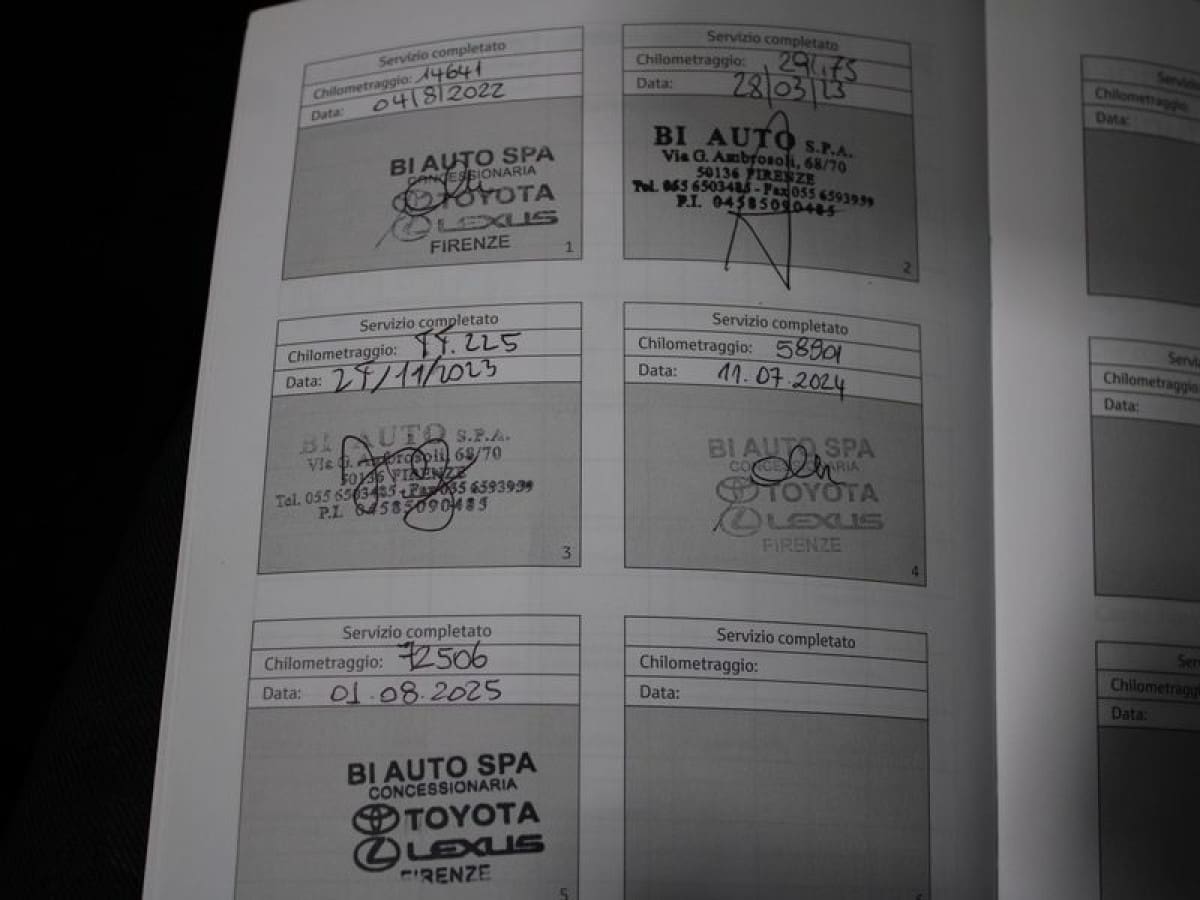 Servizio completato
Chilometraggio: 14641
Data: 04/8/2022
BI AUTO SPA
CONCESSIONARIA
TOYOTA
LEXUS
FIRENZE
1
Servizio completato
Chilometraggio:
Data: 28/03/23
BI AUTO S.P.A.
Via G. Ambrosoli, 68/70
50136 FIRENZE
Tel. 055 6503485 - Fax 055 6593959
P.I. 04585090485
2
Servizio completato
Chilometraggio:
Data: 27/11/2023
BI AUTO S.P.A.
Via G. Ambrosoli, 68/70
50136 FIRENZE
Tel. 055 6503485 - Fax 055 6593959
P.I. 04585090485
3
Servizio completato
Chilometraggio: 58901
Data: 11.07.2024
BI AUTO SPA
CONCESSIONARIA
TOYOTA
LEXUS
FIRENZE
4
Servizio completato
Chilometraggio: 72506
Data: 01.08.2025
BI AUTO SPA
CONCESSIONARIA
TOYOTA
LEXUS
FIRENZE
5
Servizio completato
Chilometraggio:
Data:
Chilometraggio
Data:
Chilometraggio
Data:
Chilometraggio
Data: